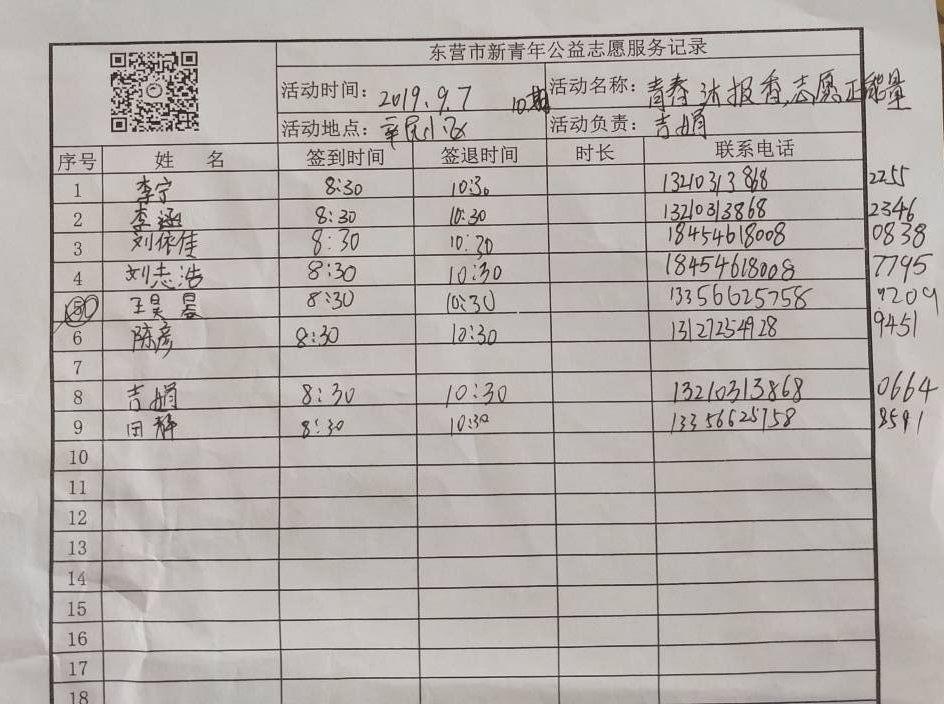 东营市新青年公益志愿服务记录
活动时间：2019.9.7 10期 活动名称：青春沐报香,志愿正能量
活动地点：辛民小区 活动负责：吉娟
序号 姓名 签到时间 签退时间 时长 联系电话
1 李宁 8:30 10:30 13210313868 2255
2 李涵 8:30 10:30 13210313868 2346
3 刘依佳 8:30 10:30 18454618008 0838
4 刘志浩 8:30 10:30 18454618008 7795
5 王昊晨 8:30 10:30 13356625758 9209
6 陈彦 8:30 10:30 13127254928 9451
7
8 吉娟 8:30 10:30 13210313868 0664
9 田静 8:30 10:30 13356625758 8591
10
11
12
13
14
15
16
17
18